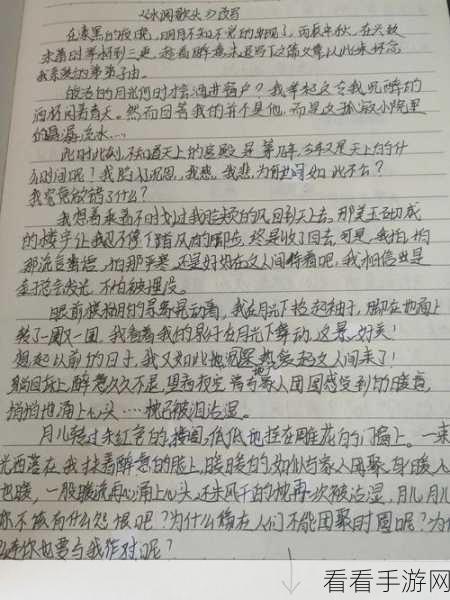 《水调歌头》改写
在漆黑的夜晚，明月不知不觉的出现了，丙辰中秋，在兴致
来着时举杯到三更，趁着醉意未退写下之篇文章以此来怀念
我亲爱的弟弟子由。
皎洁的月光何时才会洒进窗户？我举起这令我沉醉的
酒杯问着青天。然而回答我的并不是他，而是这孤寂小院里
的潺潺流水…
此时此刻，不知道天上的宫殿是第几年，今年又是天上的什
么时间呢？我陷入沉思，我想，我悲，为何世间如此不公？
我究竟做错了什么？
我想着乘着不时划过我脸颊的风回到天上去，那美玉砌成
的楼宇让我忍不停了踏风的脚步，终是收了回去，可是，我怕，怕
那流言蜚语，怕那严寒，还是好好在这人间待着吧，我相信也是
金子总会发光，不怕被埋没。
眼前模糊的景象晃动着，我在月光下抬起袖子，脚在地面上
转了一圈又一圈，我看着我的影子在月光下舞动，这景，好美！
想起以前的日子，我又如此地热爱起这人间来了！
躺回床上，醉意久久不退，里与家人团圆感受到的暖意
悄悄地涌上心头……枕已被泪沾湿。
月儿转过朱红色的楼阁，低低地挂在雕花的门窗上。一束
光洒落在我抹着醉意的脸上，暖暖的，如似与家人团聚，身暖人
也暖，一股暖流再心涌上心头，还未风干的枕再次被沾湿，月儿月儿
你不该有什么怨恨吧？为什么偏在人们不能团聚时圆呢？为什
么连你也要与我作对呢？
看看手游网